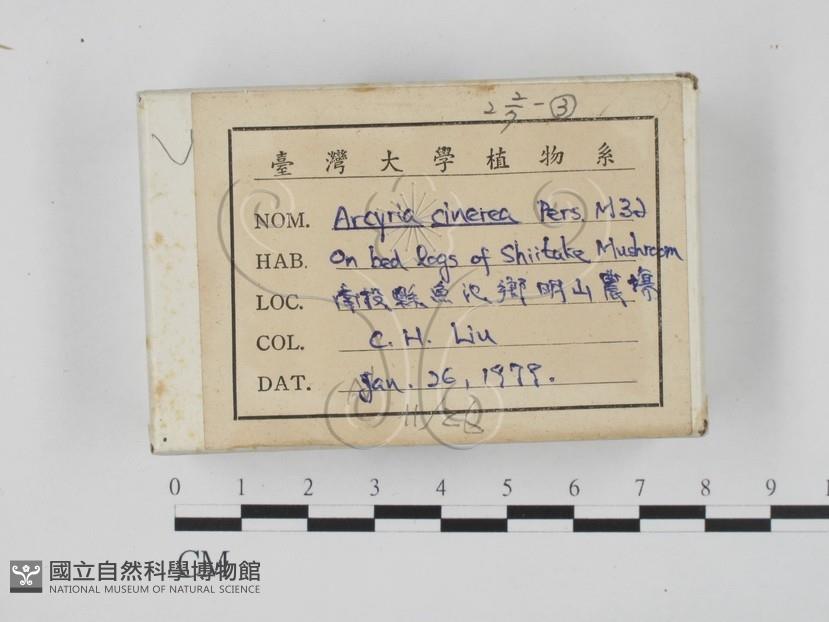 2 2/7 - ③
臺灣大學植物系
NOM. Arcyria cinerea Pers. M32
HAB. On bed logs of Shiitake Mushroom
LOC. 南投縣魚池鄉明山農場
COL. C. H. Liu
DAT. Jan. 26, 1979.
0 1 2 3 4 5 6 7 8 9
CM
國立自然科學博物館
NATIONAL MUSEUM OF NATURAL SCIENCE